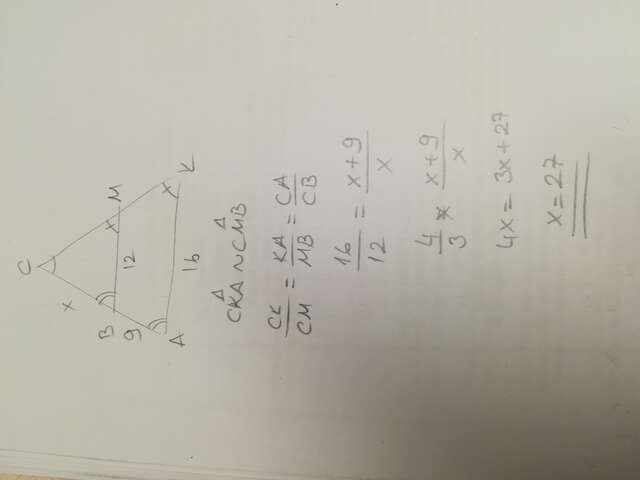 C
x
B M
12
9
A 16 K
Δ Δ
CKA ~ CMB
CK/CM = KA/MB = CA/CB
16/12 = x+9/x
4/3 x x+9/x
4x = 3x+27
x = 27